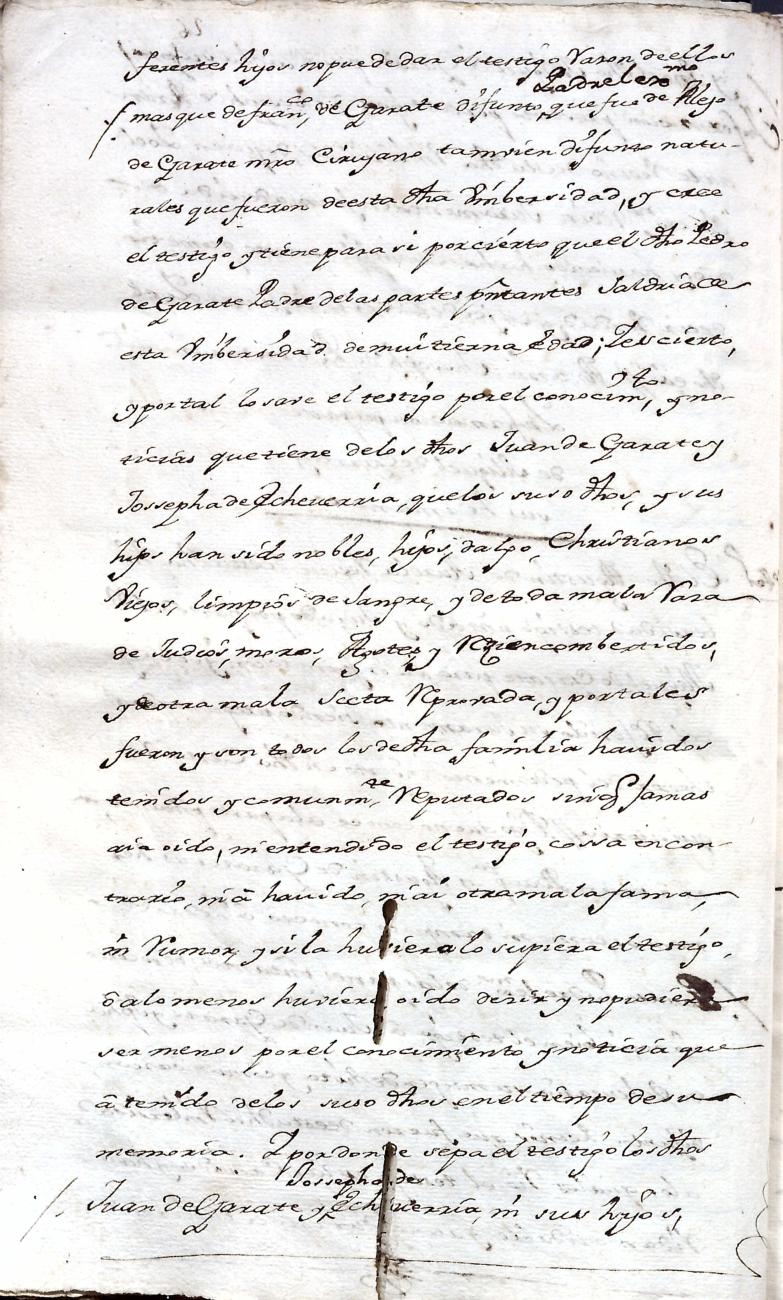 ferentes hijos nopuede dar el testigo Varon deellos
Padre lexmo
mas que de franco, de Garate difunto, que fue de Alejo
de Garate mro Cirujano tamvien difunto natu-
rales que fueron deesta dha Vnibersidad, y cree
el testigo y tiene para si por cierto que el dho Pedro
de Garate Padre de las partes pntantes Saldria de
esta Vnibersidad de mui tierna Edad; Y es cierto,
y portal lo save el testigo por el conocimto, y no-
ticias que tiene delos dhos Juan de Garate y
Jossepha de Echeverria, quelos suso dhos, y sus
hijos han sido nobles, hijos, dalgo, Christianos
Viejos, limpios de Sangre, y de toda mala Raza
de Judios, moros, Agotes, y Rezien combertidos,
y de otra mala Secta Reprovada, y por tales
fueron y son todos los de dha familia havidos
tenidos y comunmte, Reputados sin q Jamas
aia oido, ni entendido el testigo, cossa en con-
trario, ni á havido, ni ai otra mala fama,
ni Rumor, y si la huviera lo supiera el testigo,
ó alo menos huviera oido desir y no pudiera
ser menos por el conocimiento y noticia que
á tenido delos suso dhos en el tiempo de su
memoria. Y por donde sepa el testigo los dhos
Jossepha de
Juan de Garate y Echeverria, ni sus hijos,